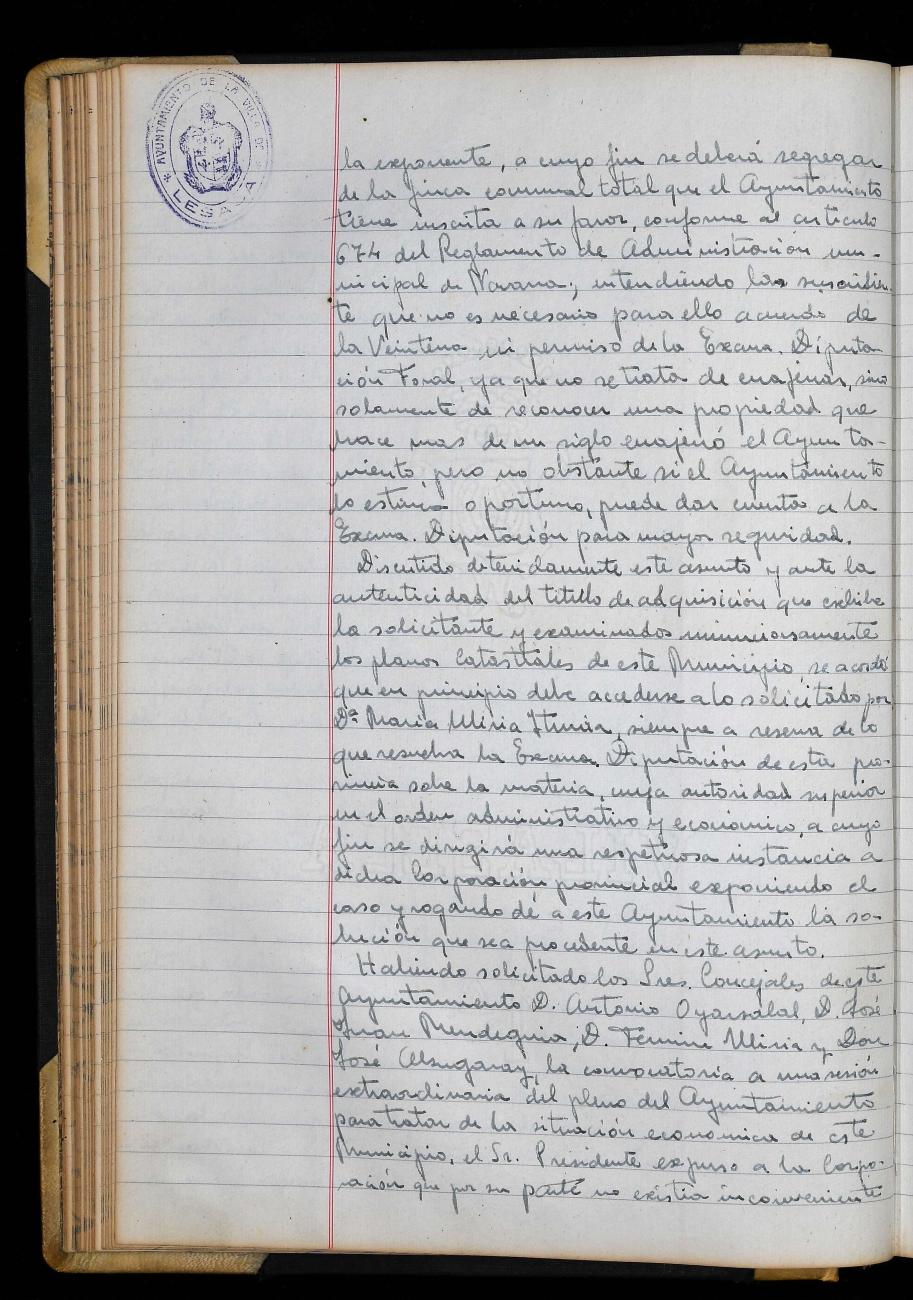 AYUNTAMIENTO DE LA VILLA DE
LESACA
la exponente, a cuyo fin se deberá segregar
de la finca comunal total que el Ayuntamiento
tiene inscrita a su favor, conforme al articulo
674 del Reglamento de Administración mu-
nicipal de Navarra; entendiendo la suscribien-
te que no es necesario para ello acuerdo de
la Veintena ni permiso de la Excma. Diputa-
ción Foral, ya que no se trata de enajenar, sino
solamente de reconocer una propiedad que
hace mas de un siglo enajenó el Ayunta-
miento, pero no obstante si el Ayuntamiento
lo estima oportuno, puede dar cuenta a la
Excma. Diputación para mayor seguridad.
Discutido detenidamente este asunto y ante la
autenticidad del titulo de adquisición que exhibe
la solicitante y examinados minuciosamente
los planos Catastrales de este Municipio, se acordó
que en principio debe accederse a lo solicitado por
Dª Maria Miria Iturria, siempre a reserva de lo
que resuelva la Excma. Diputación de esta pro-
vincia sobre la materia, cuya autoridad superior
en el orden administrativo y económico, a cuyo
fin se dirigirá una respetuosa instancia a
dicha Corporación provincial exponiendo el
caso y rogando dé a este Ayuntamiento la so-
lución que sea procedente en este asunto.
Habiendo solicitado los Sres. Concejales de este
Ayuntamiento D. Antonio Oyarzabal, D. José
Juan Mendeguia, D. Fermin Miria y Don
José Alzugaray, la convocatoria a una sesión
extraordinaria del pleno del Ayuntamiento
para tratar de la situación economica de este
Municipio, el Sr. Presidente expuso a la Corpo-
ración que por su parte no existia inconveniente